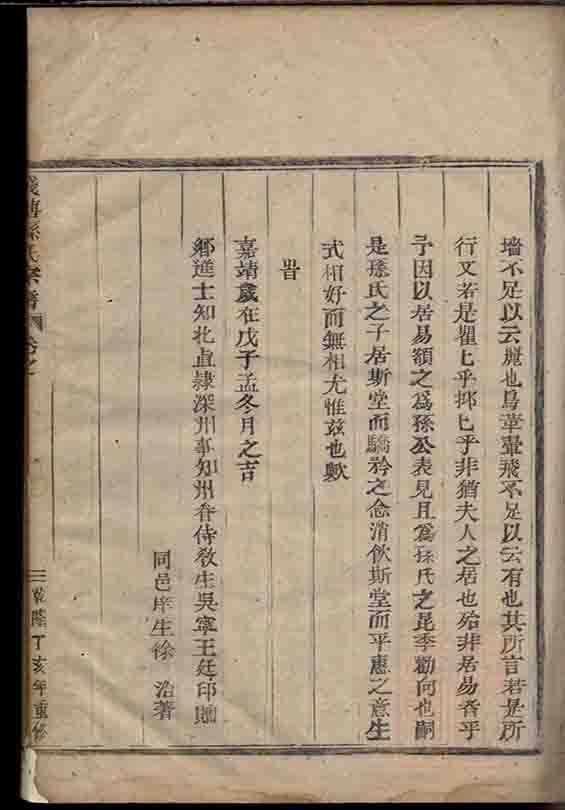 墻不足以云麗也鳥革翬飛不足以云有也其所言若是所
行又若是瞿匕乎抑匕乎非猶夫人之居也殆非居易者乎
予因以居易額之為孫公表見且為孫氏之昆季勸何也嗣
是孫氏之子居斯堂而驕矜之念消飲斯堂而平應之意生
式相好而無相尤惟兹也歟
旹
嘉靖歲在戊子孟冬月之吉
鄉進士知北直隸深州事知州眷侍敎生吳寜王廷印
同邑庠生徐浩著
孫氏宗譜
乾隆丁亥年重修